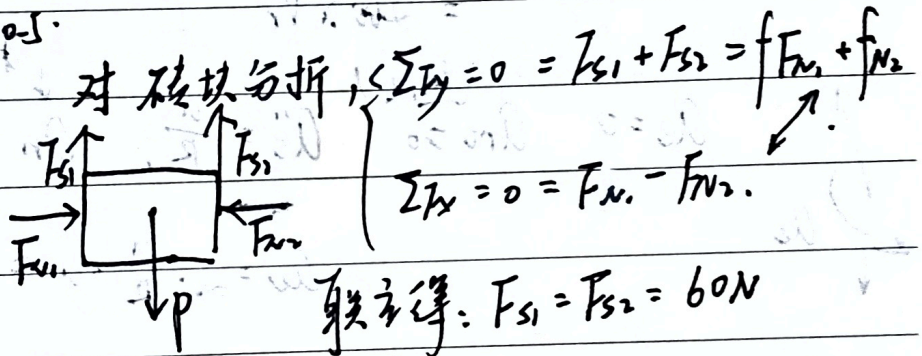 0-5.
对 砖块分析, { ΣFy = 0 = Fs1 + Fs2 = fFN1 + fN2
ΣFx = 0 = FN1 - FN2.
Fs1
Fs2
FN1
FN2
P
联立得: Fs1 = Fs2 = 60N